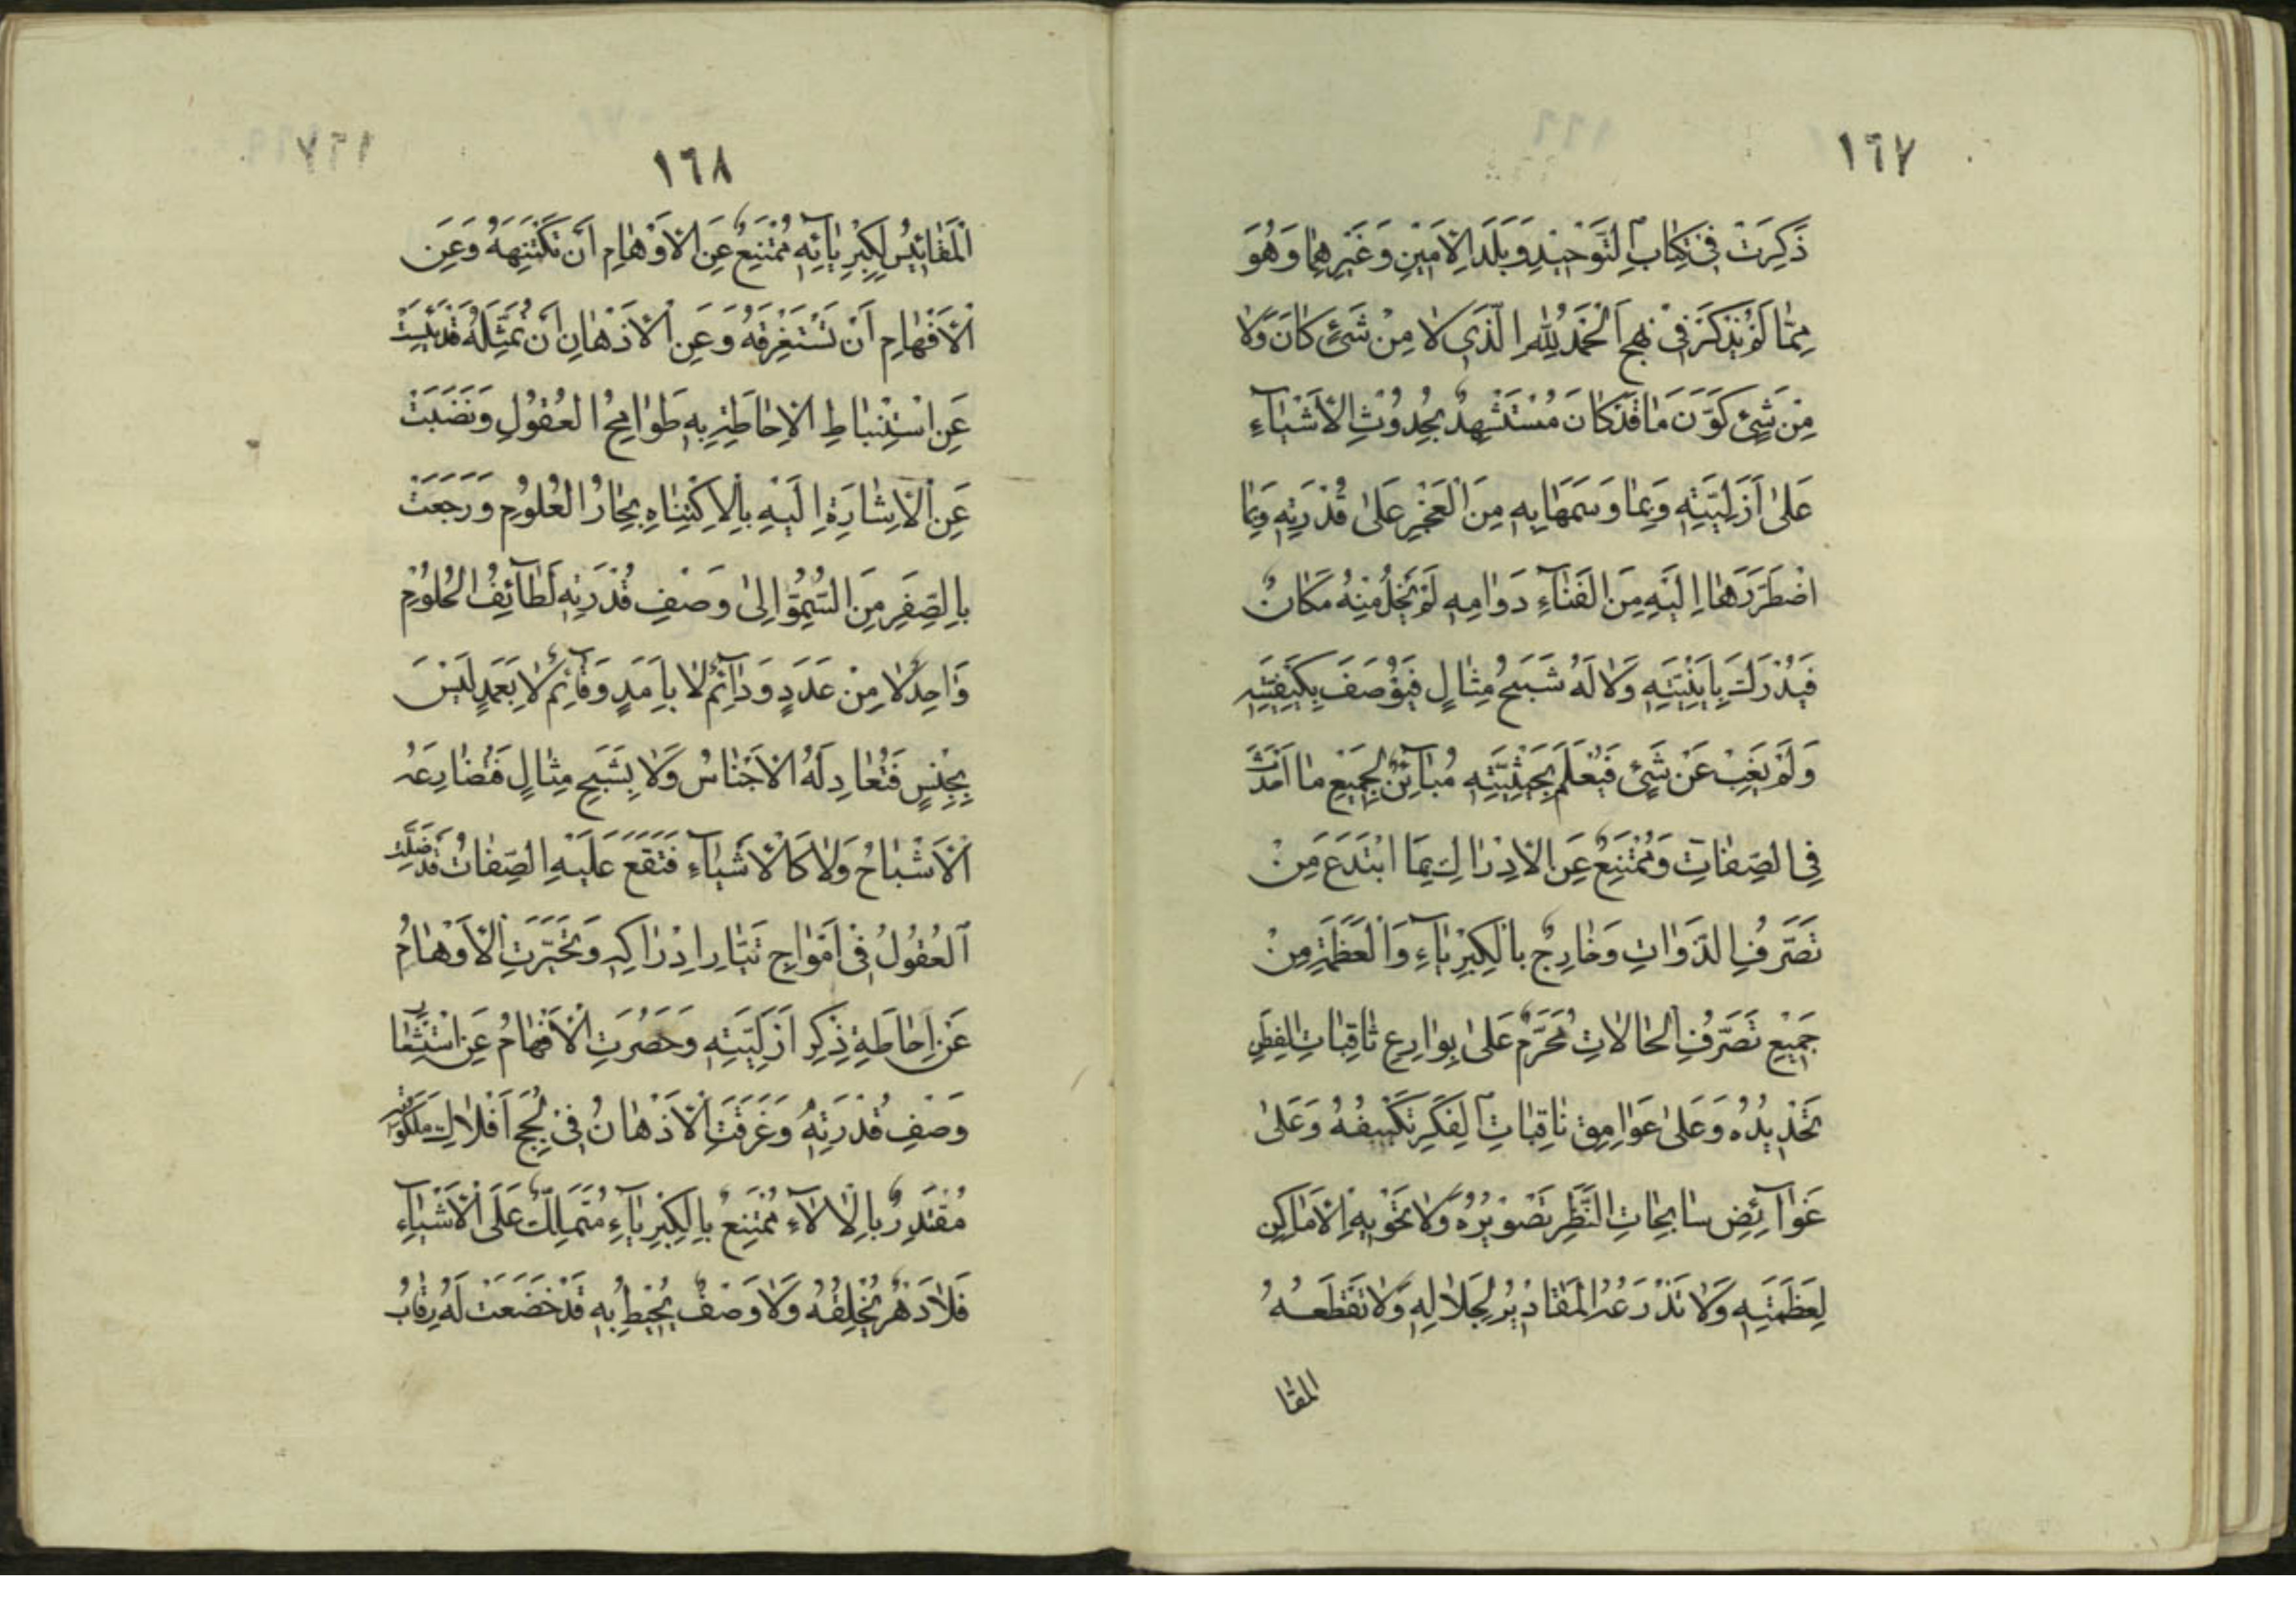 ١٦٧
ذُكِرَتْ فِي كِتَابِ التَّوْحِيدِ وَبَلَدِ الْأَمِينِ وَغَيْرِهِمَا وَهُوَ
مِمَّا لَمْ يُذْكَرْ فِي نَهْجِ اَلْحَمْدُ لِلّٰهِ الَّذِي لَا مِنْ شَيْءٍ كَانَ وَلَا
مِنْ شَيْءٍ كَوَّنَ مَا قَدْ كَانَ مُسْتَشْهِدٌ بِحُدُوثِ الْأَشْيَاءِ
عَلَى أَزَلِيَّتِهِ وَبِمَا وَسَمَهَا بِهِ مِنَ الْعَجْزِ عَلَى قُدْرَتِهِ وَبِمَا
اضْطَرَّهَا إِلَيْهِ مِنَ الْفَنَاءِ دَوَامِهِ لَمْ يَخْلُ مِنْهُ مَكَانٌ
فَيُدْرَكَ بِأَيْنِيَّتِهِ وَلَا لَهُ شَبَحُ مِثَالٍ فَيُوْصَفَ بِكَيْفِيَّتِهِ
وَلَمْ يَغِبْ عَنْ شَيْءٍ فَيُعْلَمَ بِحَيْثِيَّتِهِ مُبَآئِنٌ لِجَمِيعِ مَا أَحْدَثَ
فِي الصِّفَاتِ وَمُمْتَنِعٌ عَنِ الْإِدْرَاكِ بِمَا ابْتَدَعَ مِنْ
تَصَرُّفِ الذَّوَاتِ وَخَارِجٌ بِالْكِبْرِيَآءِ وَالْعَظَمَةِ مِنْ
جَمِيعِ تَصَرُّفِ الْحَالَاتِ مُحَرَّمٌ عَلَى بَوَارِعِ ثَاقِبَاتِ الْفِطَنِ
تَحْدِيدُهُ وَعَلَى عَوَامِقِ ثَاقِبَاتِ الْفِكَرِ تَكْيِيفُهُ وَعَلَى
غَوَآئِضِ سَابِحَاتِ النَّظَرِ تَصْوِيرُهُ وَلَا تَحْوِيهِ الْأَمَاكِنُ
لِعَظَمَتِهِ وَلَا تَذْرَعُهُ الْمَقَادِيرُ لِجَلَالِهِ وَلَا تَقْطَعُهُ
المقا
١٦٨
الْمَقَائِيسُ لِكِبْرِيَآئِهِ مُمْتَنِعٌ عَنِ الْأَوْهَامِ أَنْ تَكْتَنِهَهُ وَعَنِ
الْأَفْهَامِ أَنْ تَسْتَغْرِقَهُ وَعَنِ الْأَذْهَانِ أَنْ تُمَثِّلَهُ قَدْ يَئِسَتْ
عَنِ اسْتِنْبَاطِ الْإِحَاطَةِ بِهِ طَوَامِحُ الْعُقُولِ وَنَضَبَتْ
عَنِ الْإِشَارَةِ إِلَيْهِ بِالْإِكْتِنَاهِ بِحَارُ الْعُلُومِ وَرَجَعَتْ
بِالصِّغَرِ مِنَ السُّمُوِّ إِلَى وَصْفِ قُدْرَتِهِ لَطَآئِفُ الْحُلُومِ
وَاحِدٌ لَا مِنْ عَدَدٍ وَدَآئِمٌ لَا بِأَمَدٍ وَقَآئِمٌ لَا بِعَمَدٍ لَيْسَ
بِجِنْسٍ فَتُعَادِلَهُ الْأَجْنَاسُ وَلَا بِشَبَحِ مِثَالٍ فَتُضَارِعَهُ
الْأَشْبَاحُ وَلَا كَالْأَشْيَآءِ فَتَقَعَ عَلَيْهِ الصِّفَاتُ قَدْ ضَلَّتِ
الْعُقُولُ فِي أَمْوَاجِ تَيَّارِ إِدْرَاكِهِ وَتَحَيَّرَتِ الْأَوْهَامُ
عَنْ إِحَاطَةِ ذِكْرِ أَزَلِيَّتِهِ وَحَصُرَتِ الْأَفْهَامُ عَنِ اسْتِشْعَارِ
وَصْفِ قُدْرَتِهِ وَغَرِقَتِ الْأَذْهَانُ فِي لُجَجِ أَفْلَاكِ مَلَكُوتِهِ
مُقْتَدِرٌ بِالْآلَآءِ مُمْتَنِعٌ بِالْكِبْرِيَآءِ مُتَمَلِّكٌ عَلَى الْأَشْيَآءِ
فَلَا دَهْرٌ يُخْلِقُهُ وَلَا وَصْفٌ يُحِيطُ بِهِ قَدْ خَضَعَتْ لَهُ رِقَابُ